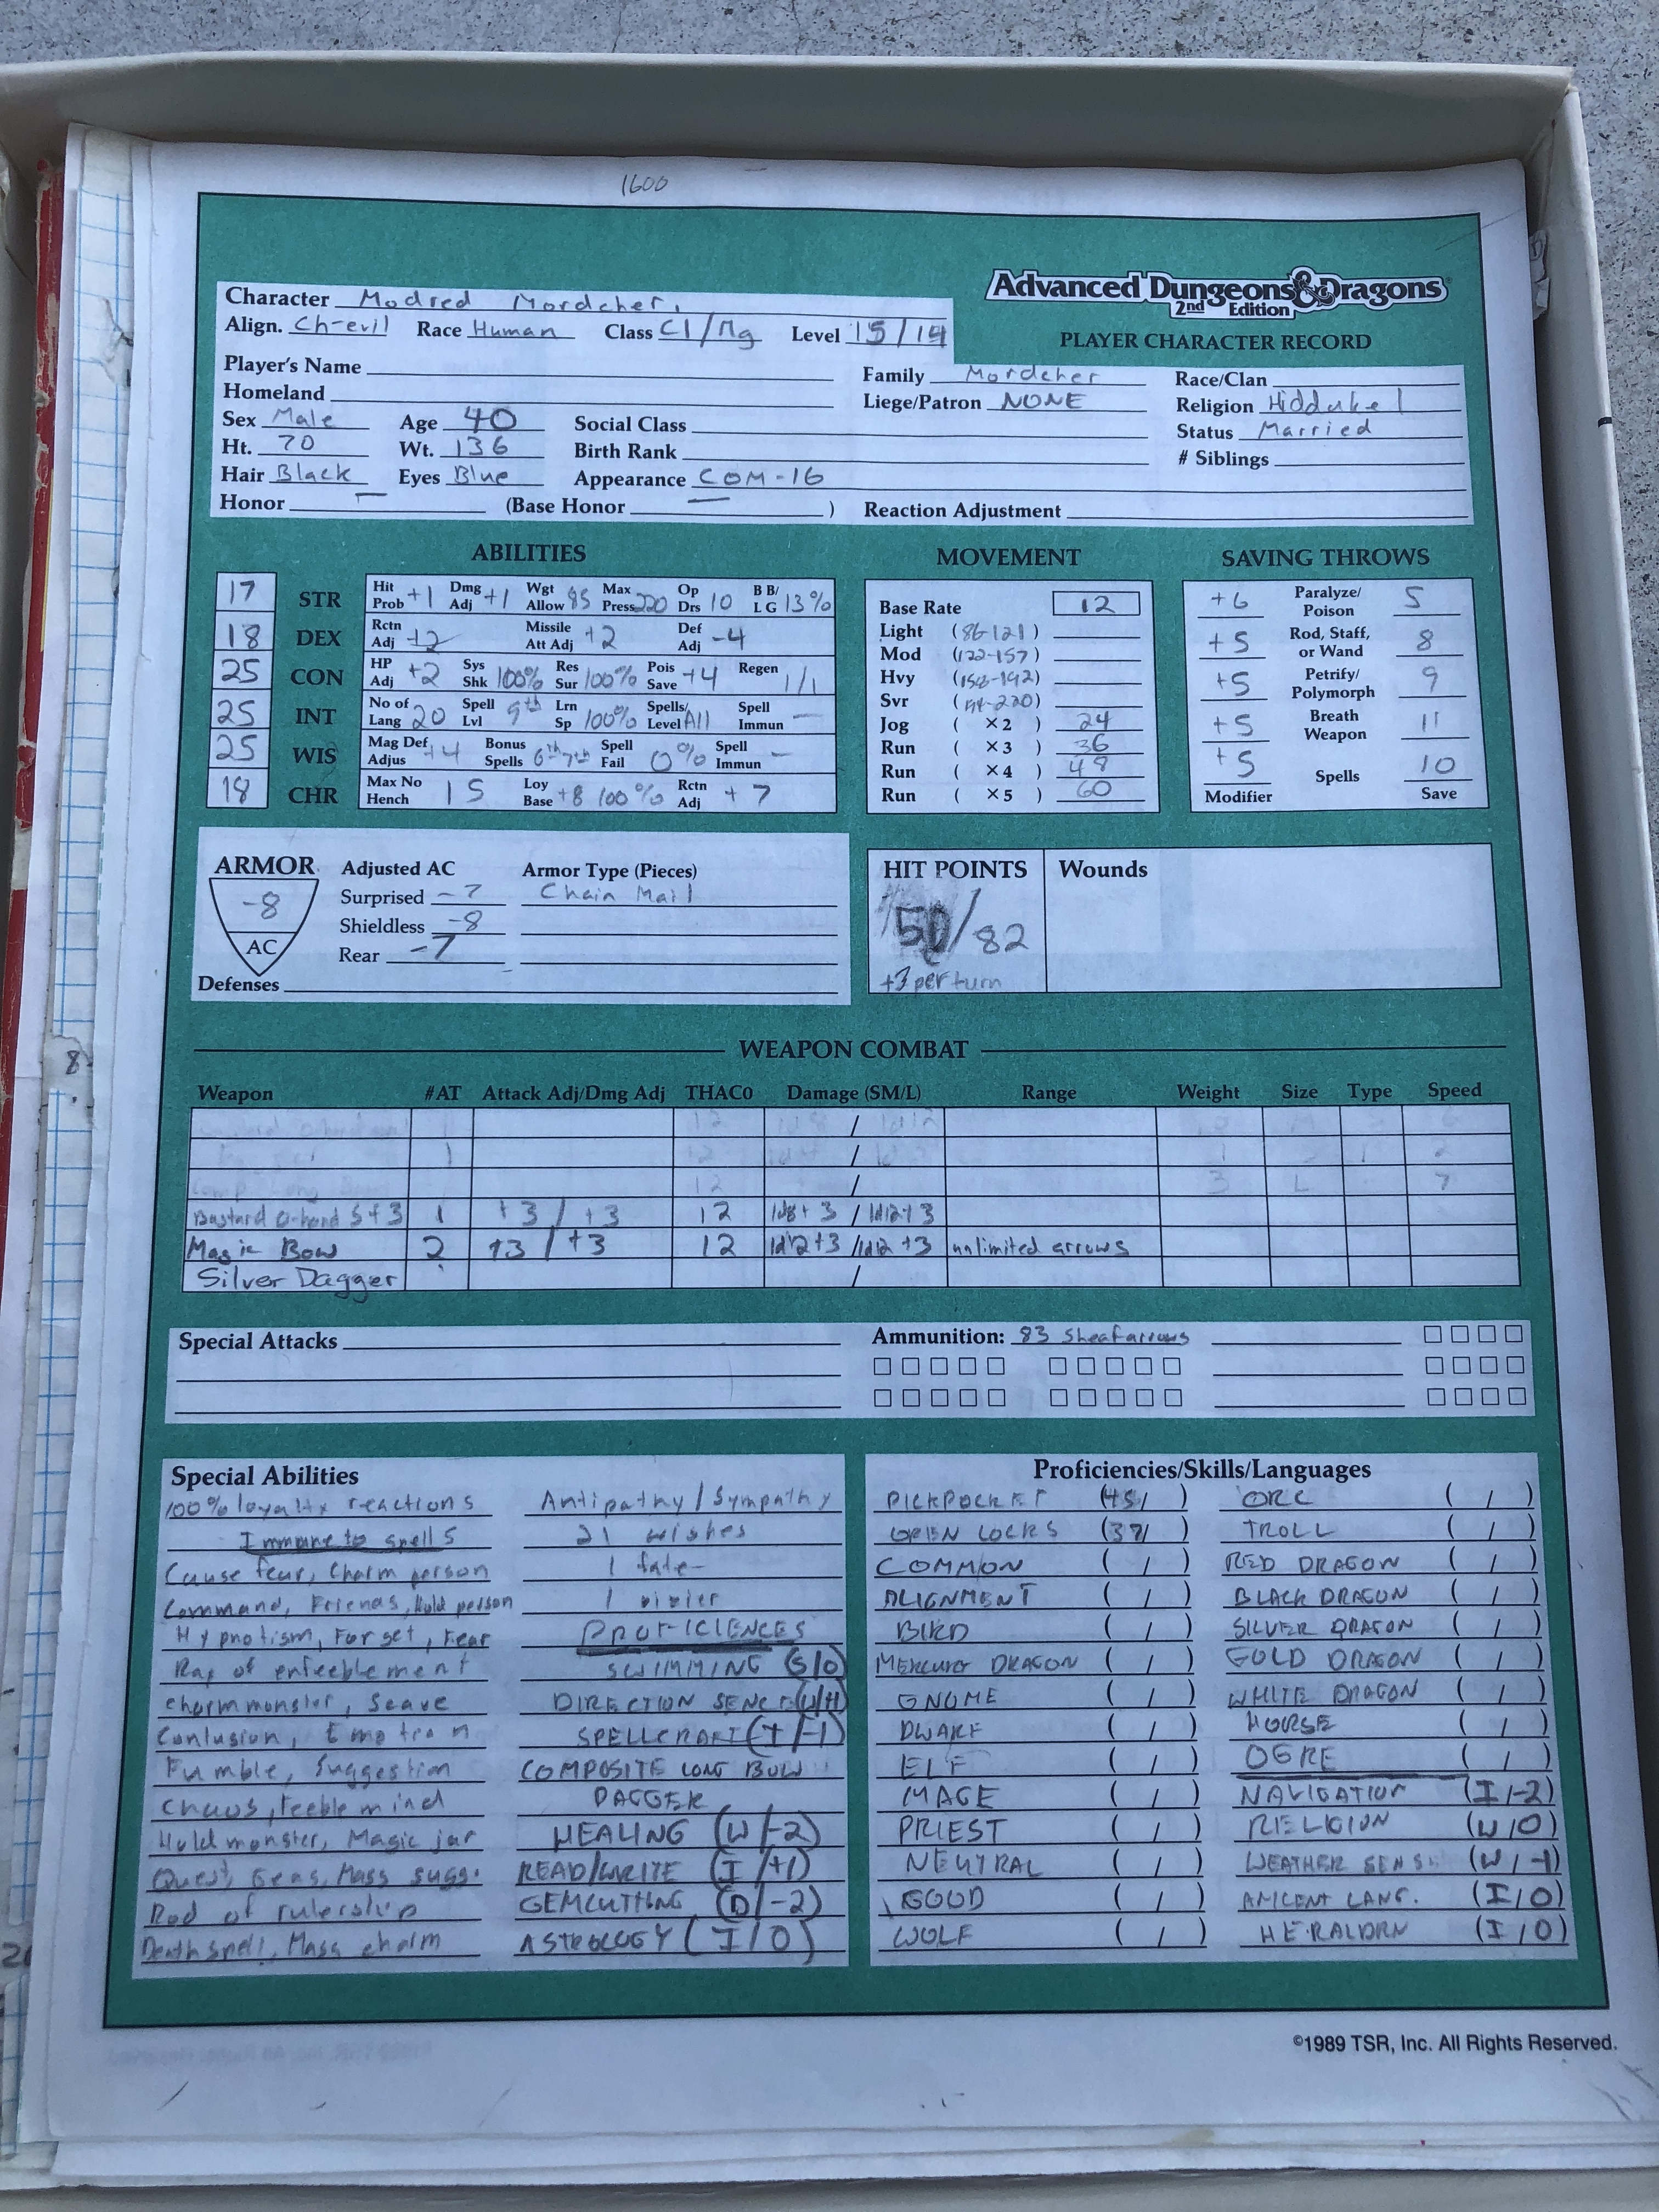 1600
Advanced Dungeons & Dragons®
2nd Edition
PLAYER CHARACTER RECORD
Character Modred Mordcher
Align. Ch-evil Race Human Class Cl/Mg Level 15/14
Player's Name
Homeland
Family Mordcher Race/Clan
Liege/Patron NONE Religion Hiddukel
Sex Male Age 40 Social Class
Status Married
Ht. 70 Wt. 136 Birth Rank
# Siblings
Hair Black Eyes Blue Appearance COM-16
Honor — (Base Honor — ) Reaction Adjustment
ABILITIES
17 STR Hit Prob +1 Dmg Adj +1 Wgt Allow 85 Max Press 220 Op Drs 10 B B/ L G 13%
18 DEX Rctn Adj +2 Missile Att Adj +2 Def Adj -4
25 CON HP Adj +2 Sys Shk 100% Res Sur 100% Pois Save +4 Regen 1/1
25 INT No of Lang 20 Spell Lvl 9th Lrn Sp 100% Spells/ Level All Spell Immun —
25 WIS Mag Def Adjus +4 Bonus Spells 6th 7th Spell Fail 0% Spell Immun —
18 CHR Max No Hench 15 Loy Base +8 100% Rctn Adj +7
MOVEMENT
Base Rate 12
Light (86-121)
Mod (122-157)
Hvy (158-192)
Svr
Jog ( ×2 ) 24
Run ( ×3 ) 36
Run ( ×4 ) 48
Run ( ×5 ) 60
SAVING THROWS
+6 Paralyze/ Poison 5
+5 Rod, Staff, or Wand 8
+5 Petrify/ Polymorph 9
+5 Breath Weapon 11
+5 Spells 10
Modifier Save
ARMOR -8 AC
Adjusted AC Armor Type (Pieces)
Surprised -7 Chain Mail
Shieldless -8
Rear -7
Defenses
HIT POINTS Wounds
50/82
+3 per turn
WEAPON COMBAT
Weapon #AT Attack Adj/Dmg Adj THAC0 Damage (SM/L) Range Weight Size Type Speed
12 1d8 / 1d12
1 12 / 1 2
12 / 3 L 7
Bastard O-hand S+3 1 +3 / +3 12 1d8+3 / 1d12+3
Magic Bow 2 +3 / +3 12 1d12+3 / 1d12+3 unlimited arrows
Silver Dagger /
Special Attacks
Ammunition: 83 Sheafarrows
Special Abilities
100% loyalty reactions
Immune to spells
Cause fear, Charm person
Command, Friends, Hold person
Hypnotism, Forget, Fear
Ray of enfeeblement
charm monster, Scare
Confusion, Emotion
Fumble, Suggestion
Chaos, Feeblemind
Hold monster, Magic jar
Quest, Geas, Mass sugg.
Rod of rulership
Death spell, Mass charm
Antipathy/Sympathy
21 wishes
1 fate
1
PROFICIENCES
SWIMMING (S/0)
DIRECTION SENCE (W/+1)
SPELLCRAFT (I/-1)
COMPOSITE LONG BOW
DAGGER
HEALING (W/-2)
READ/WRITE (I/+1)
GEMCUTTING (D/-2)
ASTROLOGY (I/0)
Proficiencies/Skills/Languages
PICKPOCKET (45/ )
OPEN LOCKS (37/ )
COMMON ( / )
ALIGNMENT ( / )
BIRD ( / )
MERCURY DRAGON ( / )
GNOME ( / )
DWARF ( / )
ELF ( / )
MAGE ( / )
PRIEST ( / )
NEUTRAL ( / )
GOOD ( / )
WOLF ( / )
ORC ( / )
TROLL ( / )
RED DRAGON ( / )
BLACK DRAGON ( / )
SILVER DRAGON ( / )
GOLD DRAGON ( / )
WHITE DRAGON ( / )
HORSE ( / )
OGRE ( / )
NAVIGATION (I/-2)
RELIGION (W/0)
WEATHER SENS. (W/-1)
ANICENT LANG. (I/0)
HERALDRY (I/0)
©1989 TSR, Inc. All Rights Reserved.
8